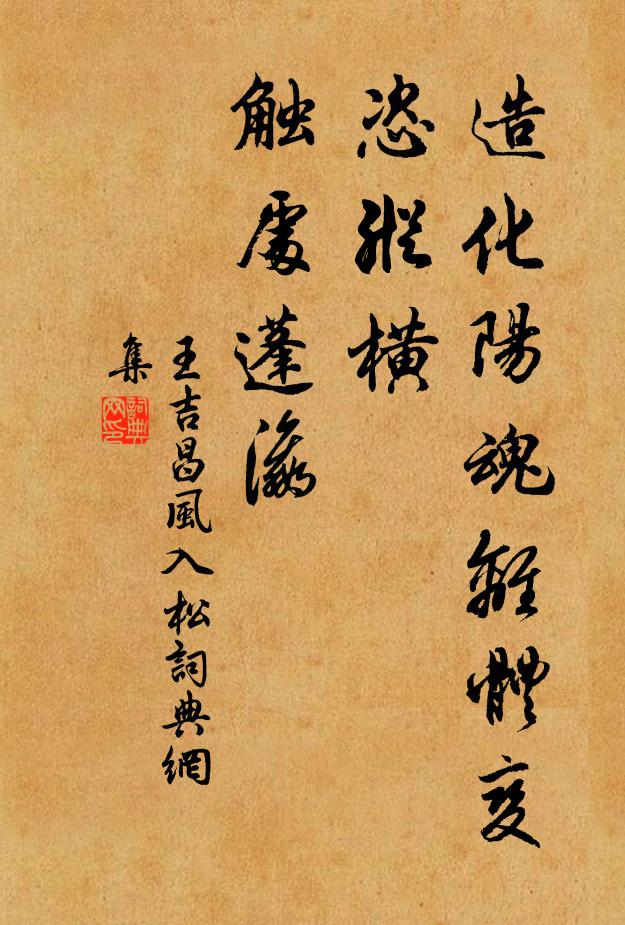 造化陽魂離體變
恣縱橫
触處蓬瀛
王吉昌風入松詞典網
集
詞典
网印